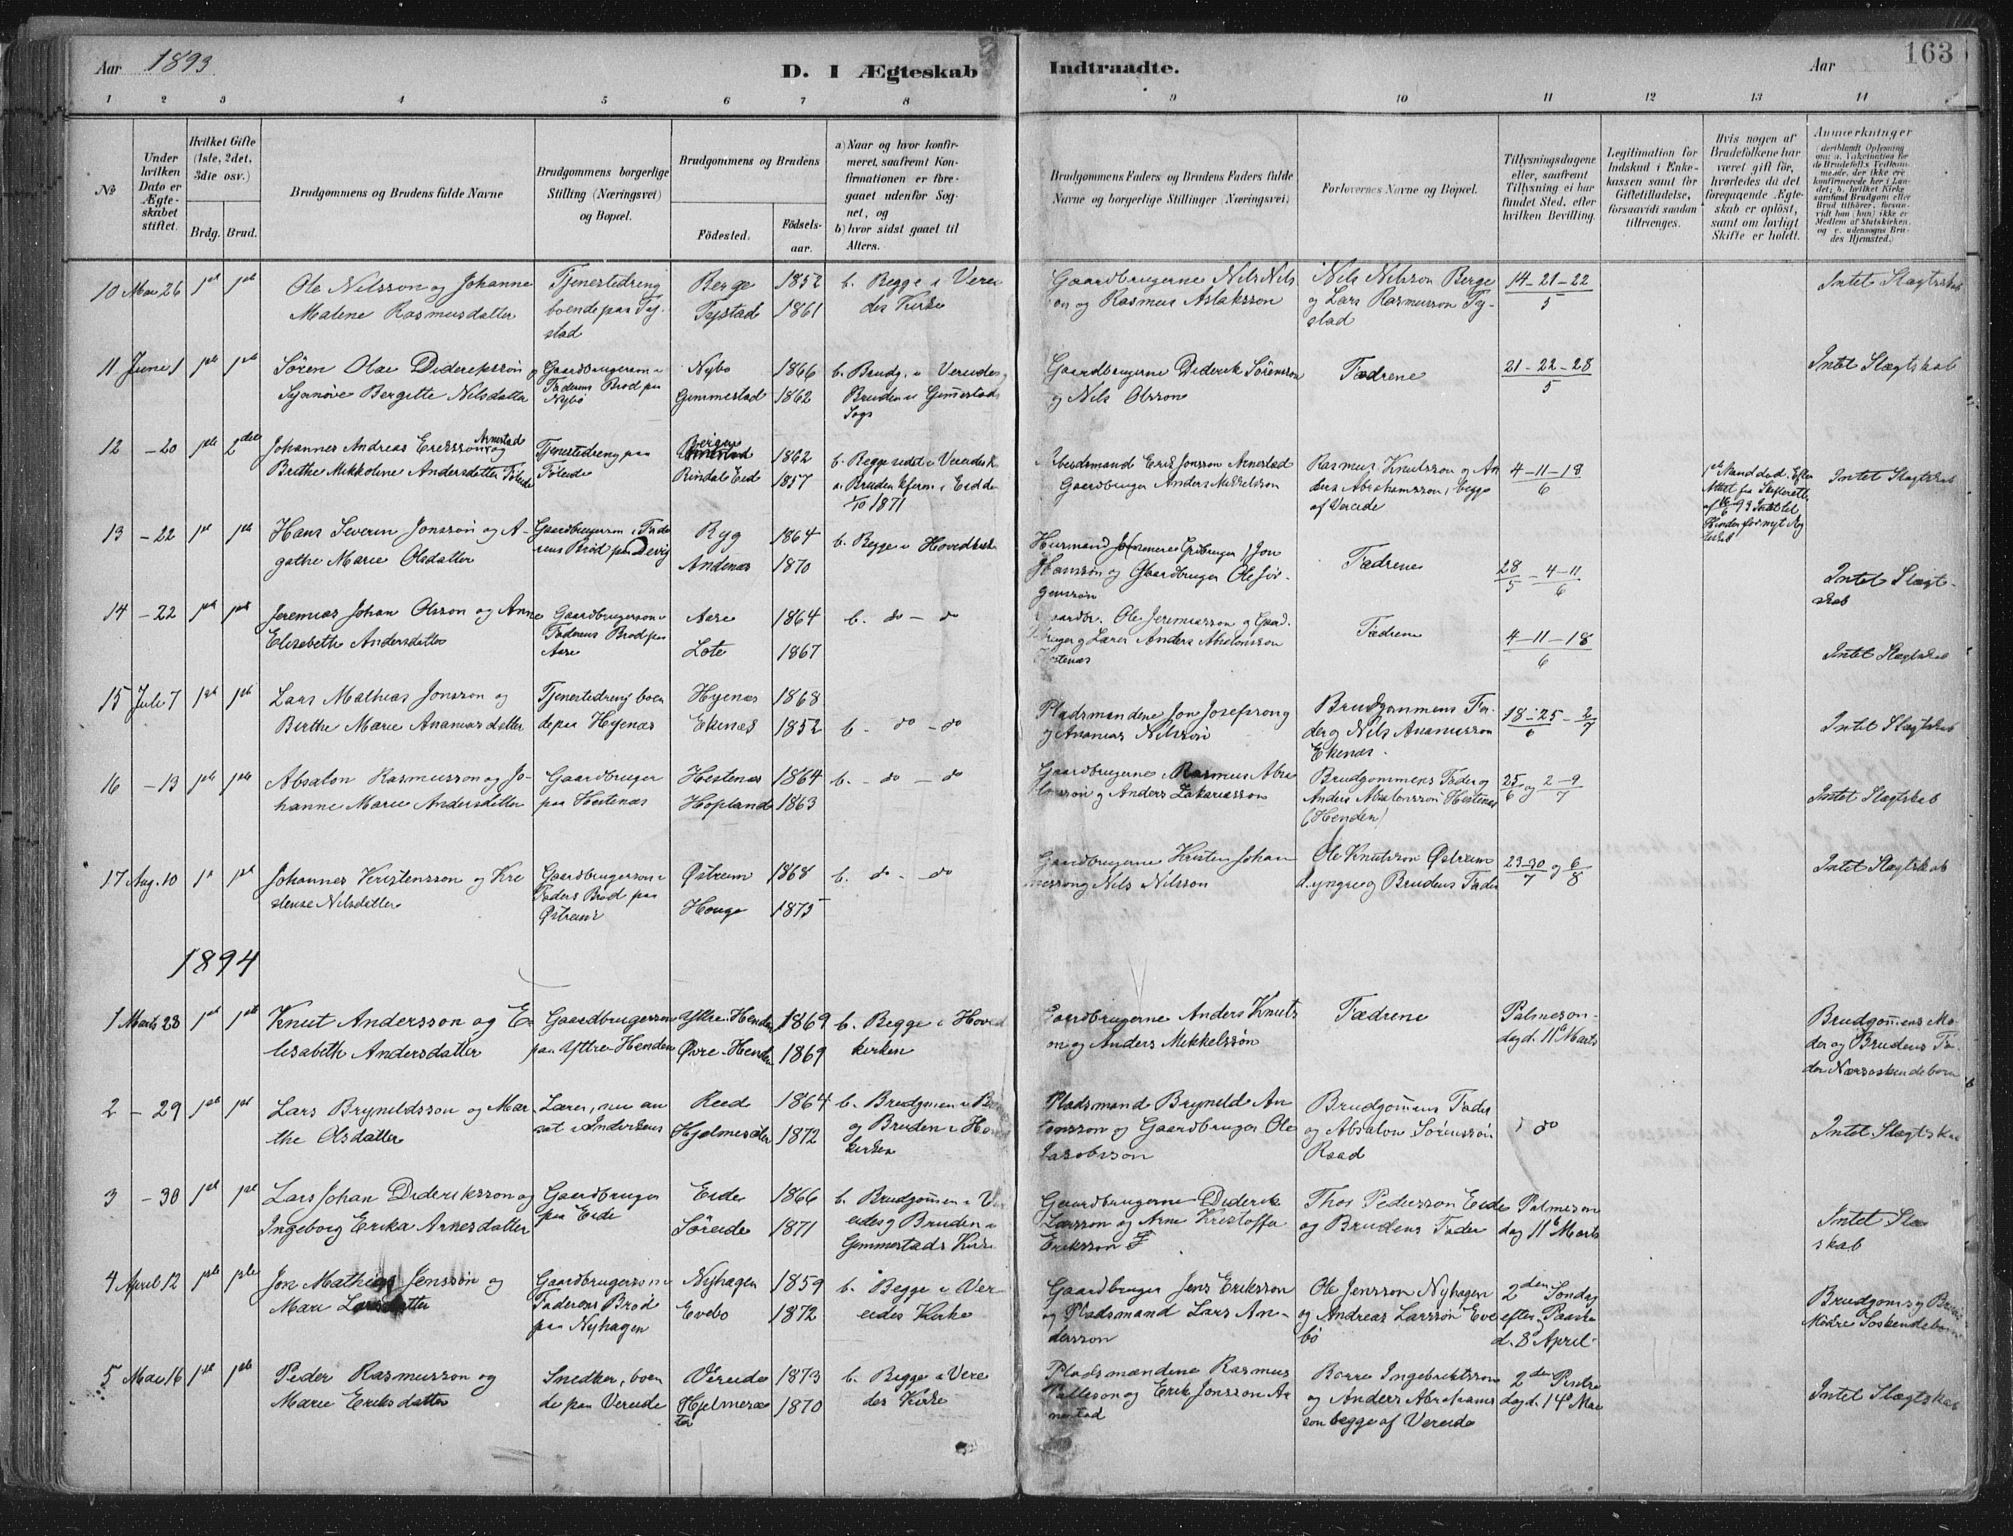 Aar 1893
D. I Ægteskab Indtraadte.
Aar
163
1 2 3 4 5 6 7 8 9 10 11 12 13 14
No
Under hvilken Dato er Ægteskabet stiftet.
Hvilket Gifte (1ste, 2det, 3die osv.)
Brdg. Brud.
Brudgommens og Brudens fulde Navne
Brudgommens borgerlige Stilling (Næringsvei) og Bopæl.
Brudgommens og Brudens
Fødested. Fødselsaar.
a) Naar og hvor konfirmeret, saafremt Konfirmationen er foregaaet udenfor Sognet, og
b) hvor sidst gaaet til Alters.
Brudgommens Faders og Brudens Faders fulde Navne og borgerlige Stillinger (Næringsvei)
Forlovernes Navne og Bopæl.
Tillysningsdagene eller, saafremt Tillysning ei har fundet Sted, efter hvilken Bevilling.
Legitimation for Indskud i Enkekassen samt for Giftetilladelse, forsaavidt saadan tiltrænges.
Hvis nogen af Brudefolkene har været gift før, hvorledes da det foregaaende Ægteskab er opløst, samt om lovligt Skifte er holdt.
Anmerkninger
10 Mai 26 1ste 1ste Ole Nilsson og Johanne Malene Rasmusdatter
Tjenestedreng boende paa Tystad
Berge 1852
Tystad 1861
b. Begge i Vereides Kirke
Gaardbrugerne Nils Nilsson og Rasmus Aslaksson
Nils Nilsson Berge og Lars Rasmusson Tystad
14-21-22/5
Intet Slægtskab
11 Juni 1 1ste 1ste Søren Olai Dideriksson og Synnøve Bergitte Nilsdatter
Gaardbrugersøn i Faderens Brød paa Nybø
Nybø 1866
Gimmestad 1862
b. Brudg. i Vereides, Bruden i Gimmestads Sogn
Gaardbrugerne Diderik Sørensson og Nils Olsson
Fædrene
21-22-28/5
Intet Slægtskab
12 -20 1ste 2den Johannes Andreas Eriksson Arnestad og Berthe Mikkoline Andersdatter Føleide
Tjenestedreng paa Føleide
Bergen 1862
Rindal Eid 1857
b. Begge sidst i Vereides K
a. Bruden kfirm. i Eid de 1/10 1871
Arbeidsmand Erik Jonsson Arnestad Gaardbruger Anders Mikkelsson
Rasmus Knutsson og Anders Abrahamsson, begge af Vereide
4-11-18/6
1ste Mand død. Efter Attest fra Skifteretten af 16/6 93 Intet til Hinder for nyt Ægteskab
Intet Slægtskab
13 -22 1ste 1ste Hans Severin Jonsson og Agathe Marie Olsdatter
Gaardbrugersøn i Faderens Brød paa Devig
Ryg 1864
Andenæs 1870
b. Begge i Hovedkirken
Husmand (forenere Grdbruger) Jon Hansson og Gaardbruger Ole Jørgensson
Fædrene
28/5-4-11/6
Intet Slægtskab
14 -22 1ste 1ste Jeremias Johan Olsson og Anne Elisabeth Andersdatter
Gaardbrugersøn i Faderens Brød paa Aase
Aase 1864
Lote 1867
b. do - do
Gaardbr. Ole Jeremiasson og Gaardbruger og Lærer Anders Absalonsson Hestenæs
Fædrene
4-11-18/6
Intet Slægtskab
15 Juli 7 1ste 1ste Lars Mathias Jonsson og Birthe Marie Ananiasdatter
Tjenestedreng boende paa Hyenæs
Hyenæs 1868
Ekenæs 1852
b. - do - do
Pladsmandene Jon Josefson og Ananias Nilsson
Brudgommens Fader og Nils Ananiasson Ekenæs.
18-25/6-2/7
Intet Slægtskab
16 -13 1ste 1ste Absalon Rasmusson og Johanne Marie Andersdatter
Gaardbruger paa Hestenæs
Hestenæs 1864
Hopland 1863
b. - do - do
Gaardbrugerne Rasmus Absalonsson og Anders Zakariasson
Brudgommens Fader og Anders Absalonsson Hestenæs (Henden)
25/6 og 2-9/7
Intet Slægtskab
17 Aug. 10 1ste 1ste Johannes Kristensson og Kristense Nilsdatter
Gaardbrugersøn i Faders Brød paa Østrem
Østrem 1868
Houge 1875
b. do - do
Gaardbrugerne Kristen Johannesson og Nils Nilsson
Ole Knutsson Østrem d. yngre og Brudens Fader
23-30/7 og 6/8
Intet Slægtskab
1894
1 Marts 28 1ste 1ste Knut Andersson og Elisabeth Andersdatter
Gaardbrugersøn paa Yttre-Henden
Yttre-Henden 1869
Øvre-Henden 1869
b. Begge i Hovedkirken
Gaardbrugerne Anders Knutsson og Anders Mikkelsøn
Fædrene
Palmesøndag d. 11te Marts
Brudgommens Moder og Brudens Fader Næssøskendebørn
2 - 29 1ste 1ste Lars Bryneldsson og Marthe Olsdatter
Lærer, nu ansat i Indersens
Reed 1864
Hjelmeseter 1872
b. Brudgommen i og Bruden i Hovedkirken
Pladsmand Bryneld Antonsson og Gaardbruger Ole Jacobsson
Brudgommens Fader og Absalon Sørensson Raad
do
Intet Slægtskab
3 -30 1ste 1ste Lars Johan Dideriksson og Ingeborg Erika Arnesdatter
Gaardbruger paa Eide
Eide 1866
Søreide 1871
b. Brudgommen i Vereide og Bruden i Gimmestads Kirke
Gaardbrugerne Diderik Larsson og Arne Kristoffer Eriksson
Thos Pedersson Eide og Brudens Fader
Palmesøndag 11te Marts
Intet Slægtskab
4 April 12 1ste 1ste Jon Mathias Jensson og Mari Larsdatter
Gaardbrugersøn i Faderens Brød paa Nyhagen
Nyhagen 1859
Evebø 1872
b. Begge i Vereides Kirke
Gaardbruger Jens Eriksson og Pladsmand Lars Andersson
Ole Jensson Nyhagen og Andreas Larsson Evebø
2den Søndag efter Paaske d. 8 April
Brudgoms og Brud Mødre Søskendebørn
5 Mai 16 1ste 1ste Peder Rasmusson og Marie Eriksdatter
Snedker, boende paa Vereide
Vereide 1873
Hjelmeseter 1870
b. Begge i Vereides Kirke
Pladsmændene Rasmus Palleson og Erik Jonsson Arnestad
Børre Ingebriktsson og Anders Abrahamsson begge af Vereide
2den Pintsedag d. 14de Mai
Intet Slægtskab